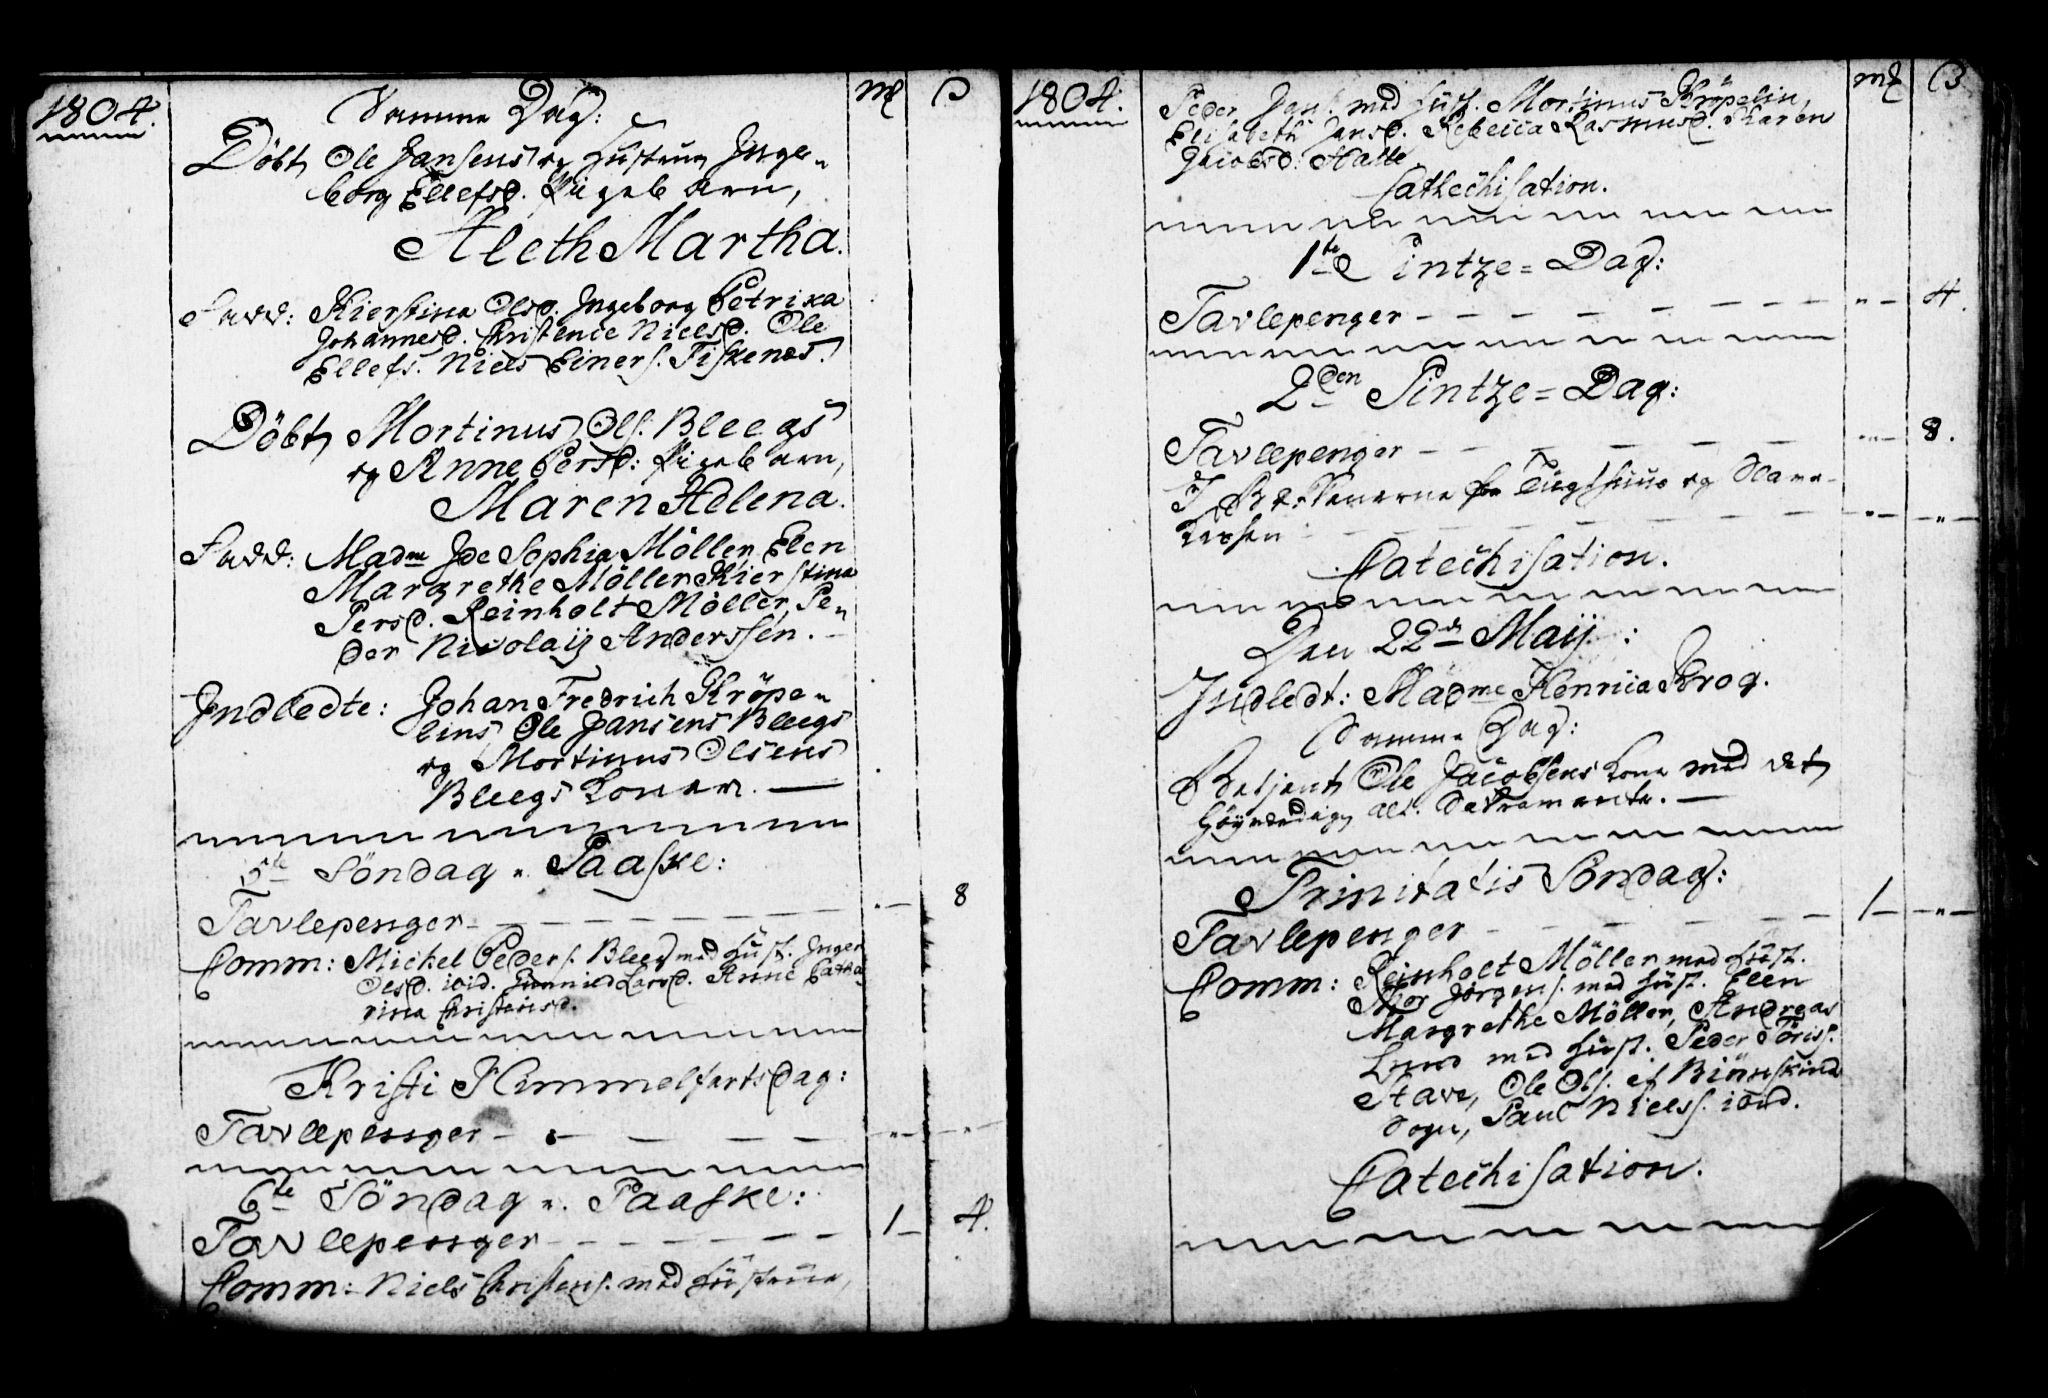 1804.
mk ß
Samme Dag:
Döbt Ole Jansens og Hustrue Inge=
borg Ellefsd. Pigebarn,
Aleth Martha.
Fadd: Kierstina Olsd. Ingeborg Petrixa
Johannesd. Christence Nielsd. Ole
Ellefs. Niels Einers. Fiskenes.
Döbt Mortinus Ols. Bleegs
og Anne Persd: Pigebarn,
Maren Helena.
Fadd: Madme Ide Sophia Möller, Elen
Margrethe Möller, Kierstina
Persd. Reinholt Möller, Pe=
der Nicolaij Anderssen. —
Indledte: Johan Fredrich Kröpe=
lins Ole Jansens Bleegs
og Mortinus Olsens
Bleegs Koner. —
5te Söndag n. Paaske:
Tavlepenger — „ — 8
Comm: Michel Peders. Bleeg med Hust. Inger
Olsd. ibid. Gunnild Larsd. Anne Catha
rina Christensd.
Kristi Himmelfarts Dag:
Tavlepenger — „ — „ —
6te Söndag n. Paaske:
Tavlepenger — 1 — 4.
Comm: Niels Christens. med Hustrue,
1804.
mk ß
Peder Jans. med Hust. Mortinus Kröpelin,
Elisabeth Jansd. Rebecca Rasmusd. Karen
Jacobsd. Halle
Cathechisation.
1te Pintze=Dag:
Tavlepenger — „ — 4.
2den Pintze=Dag:
Tavlepenger — „ — 8.
I Bekkenerne for Tugthuus og
— „ — „ —
Catechisation.
Den 22de Maij:
Indledt: Madme Henricia Krog.
Samme Dag:
Betjent Ole Jacobsens Kone med det
Höyværdige Alt. Sakramente. —
Trinitatis Söndag:
Tavlepenger — 1 — „ —
Comm: Reinholt Möller med Hust.
Jörgens. med Hust. Elen
Margrethe Möller, Andreas
Lund med Hust. Peder Töriss.
Stave, Ole Ols. af Biörnskinds
Sogn, Paul Nielss. ibid.
Catechisation.